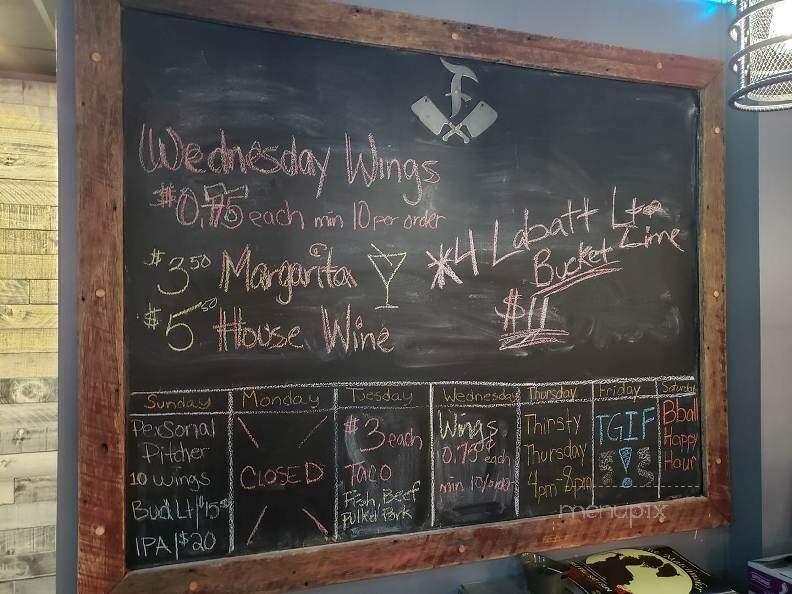 F
Wednesday Wings
$0.75 each min 10 per order
$3.50 Margarita
$5.50 House Wine
*4 Labatt Lt
Lime
Bucket
$11
Sunday
Personal
Pitcher
10 Wings
Bud Lt/$15
IPA/$20
Monday
CLOSED
Tuesday
$3 each
Taco
Fish, Beef
Pulled Pork
Wednesday
Wings
0.75¢ each
min 10/order
Thursday
Thirsty
Thursday
4pm-8pm
Friday
TGIF
!
Saturday
Bball
Happy
Hour
menupix